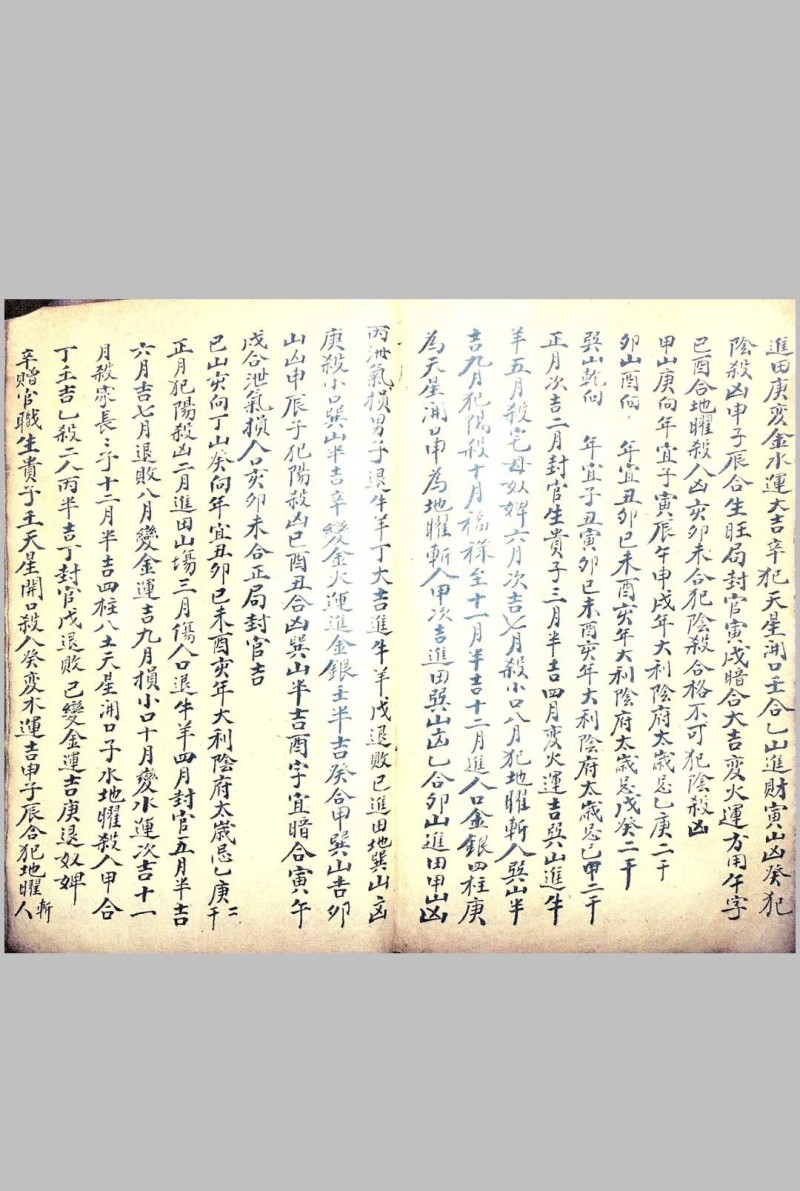 進田庚变金水運大吉辛犯天星開口壬合乙山進財寅山凶癸犯
陰殺凶申子辰合生旺局封官寅戌暗合大吉变火運方用午字
巳酉合地曜殺人凶亥卯未合犯陰殺合格不可犯陰殺凶
甲山庚向年宜子寅辰午申戌年大利陰府太歲忌乙庚二干
卯山酉向 年宜丑卯巳未酉亥年大利陰府太歲忌戊癸二干
巽山乾向 年宜子丑寅卯巳未酉亥年大利陰府太歲忌己甲二干
正月次吉二月封官生貴子三月半吉四月变火運吉巽山進牛
羊五月殺宅母奴婢六月次吉七月殺小口八月犯地曜斬人巽山半
吉九月犯陽殺十月福祿至十一月半吉十二月進人口金銀四柱庚
為天星開口申為地曜斬人甲次吉進田巽山凶乙合卯山進田甲山凶
丙泄氣損男子退牛羊丁大吉進牛羊戊退敗己進田地巽山凶
庚殺小口巽山半吉辛變金火運進金銀壬半吉癸合甲巽山吉卯
山凶申辰子犯陽殺凶巳酉丑合凶巽山半吉酉字宜暗合寅午
戌合泄氣損人口亥卯未合正局封官吉
巳山亥向丁山癸向年宜丑卯巳未酉亥年大利陰府太歲忌乙庚二干
正月犯陽殺凶二月進田山塲三月傷人口退牛羊四月封官五月半吉
六月吉七月退敗八月變金運吉九月損小口十月變水運次吉十一
月殺家長長子十二月半吉四柱八土天星開口子水地曜殺人甲合
丁壬吉乙殺二人丙半吉丁封官戊退敗己變金運吉庚退奴婢
辛贈官職生貴子壬天星開口殺人癸变木運吉申子辰合犯地曜斬人